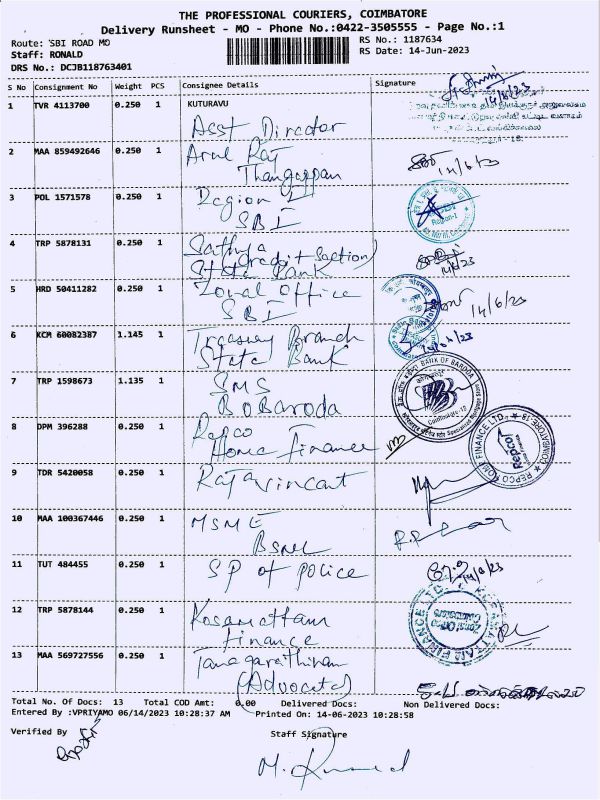 THE PROFESSIONAL COURIERS, COIMBATORE
Delivery Runsheet - MO - Phone No.:0422-3505555 - Page No.:1
Route: SBI ROAD MO
RS No.: 1187634
Staff: RONALD
RS Date: 14-Jun-2023
DRS No.: DCJB118763401
S No Consignment No Weight PCS Consignee Details Signature
1 TVR 4113700 0.250 1 KUTURAVU
14/6/23
Asst Director
2 MAA 859492646 0.250 1 Arul Raj
14/6/23
Thangappan
3 POL 1571578 0.250 1 Region I
SBI
Region-I
4 TRP 5878131 0.250 1 Sathya
(Credit Section)
State Bank
14/6/23
5 HRD 50411282 0.250 1 Zonal Office
SBI
14/6/23
6 KCM 60082387 1.145 1 Treasury Branch
State Bank
7 TRP 1598673 1.135 1 SMS
BOBaroda
BANK OF BARODA
8 DPM 396288 0.250 1 Repco
Home Finance
REPCO HOME FINANCE LTD.
COIMBATORE
Repco
9 TDR 5420058 0.250 1
10 MAA 100367446 0.250 1 MSME
BSNL
11 TUT 484455 0.250 1 SP of Police
14/6/23
12 TRP 5878144 0.250 1 Kosamattam
Finance
FINANCE LTD
13 MAA 569727556 0.250 1
(Advocate)
Total No. Of Docs: 13 Total COD Amt: 0.00 Delivered Docs: Non Delivered Docs:
Entered By :VPRIYAMO 06/14/2023 10:28:37 AM Printed On: 14-06-2023 10:28:58
Verified By
Staff Signature